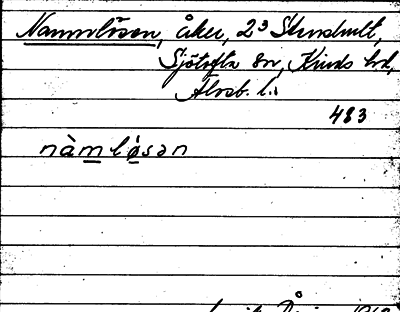 Namnlösen, åker, 2³ Stenshult,
Sjötofta sn, Kinds hd,
Älvsb. l.
483
nàmlö́sən